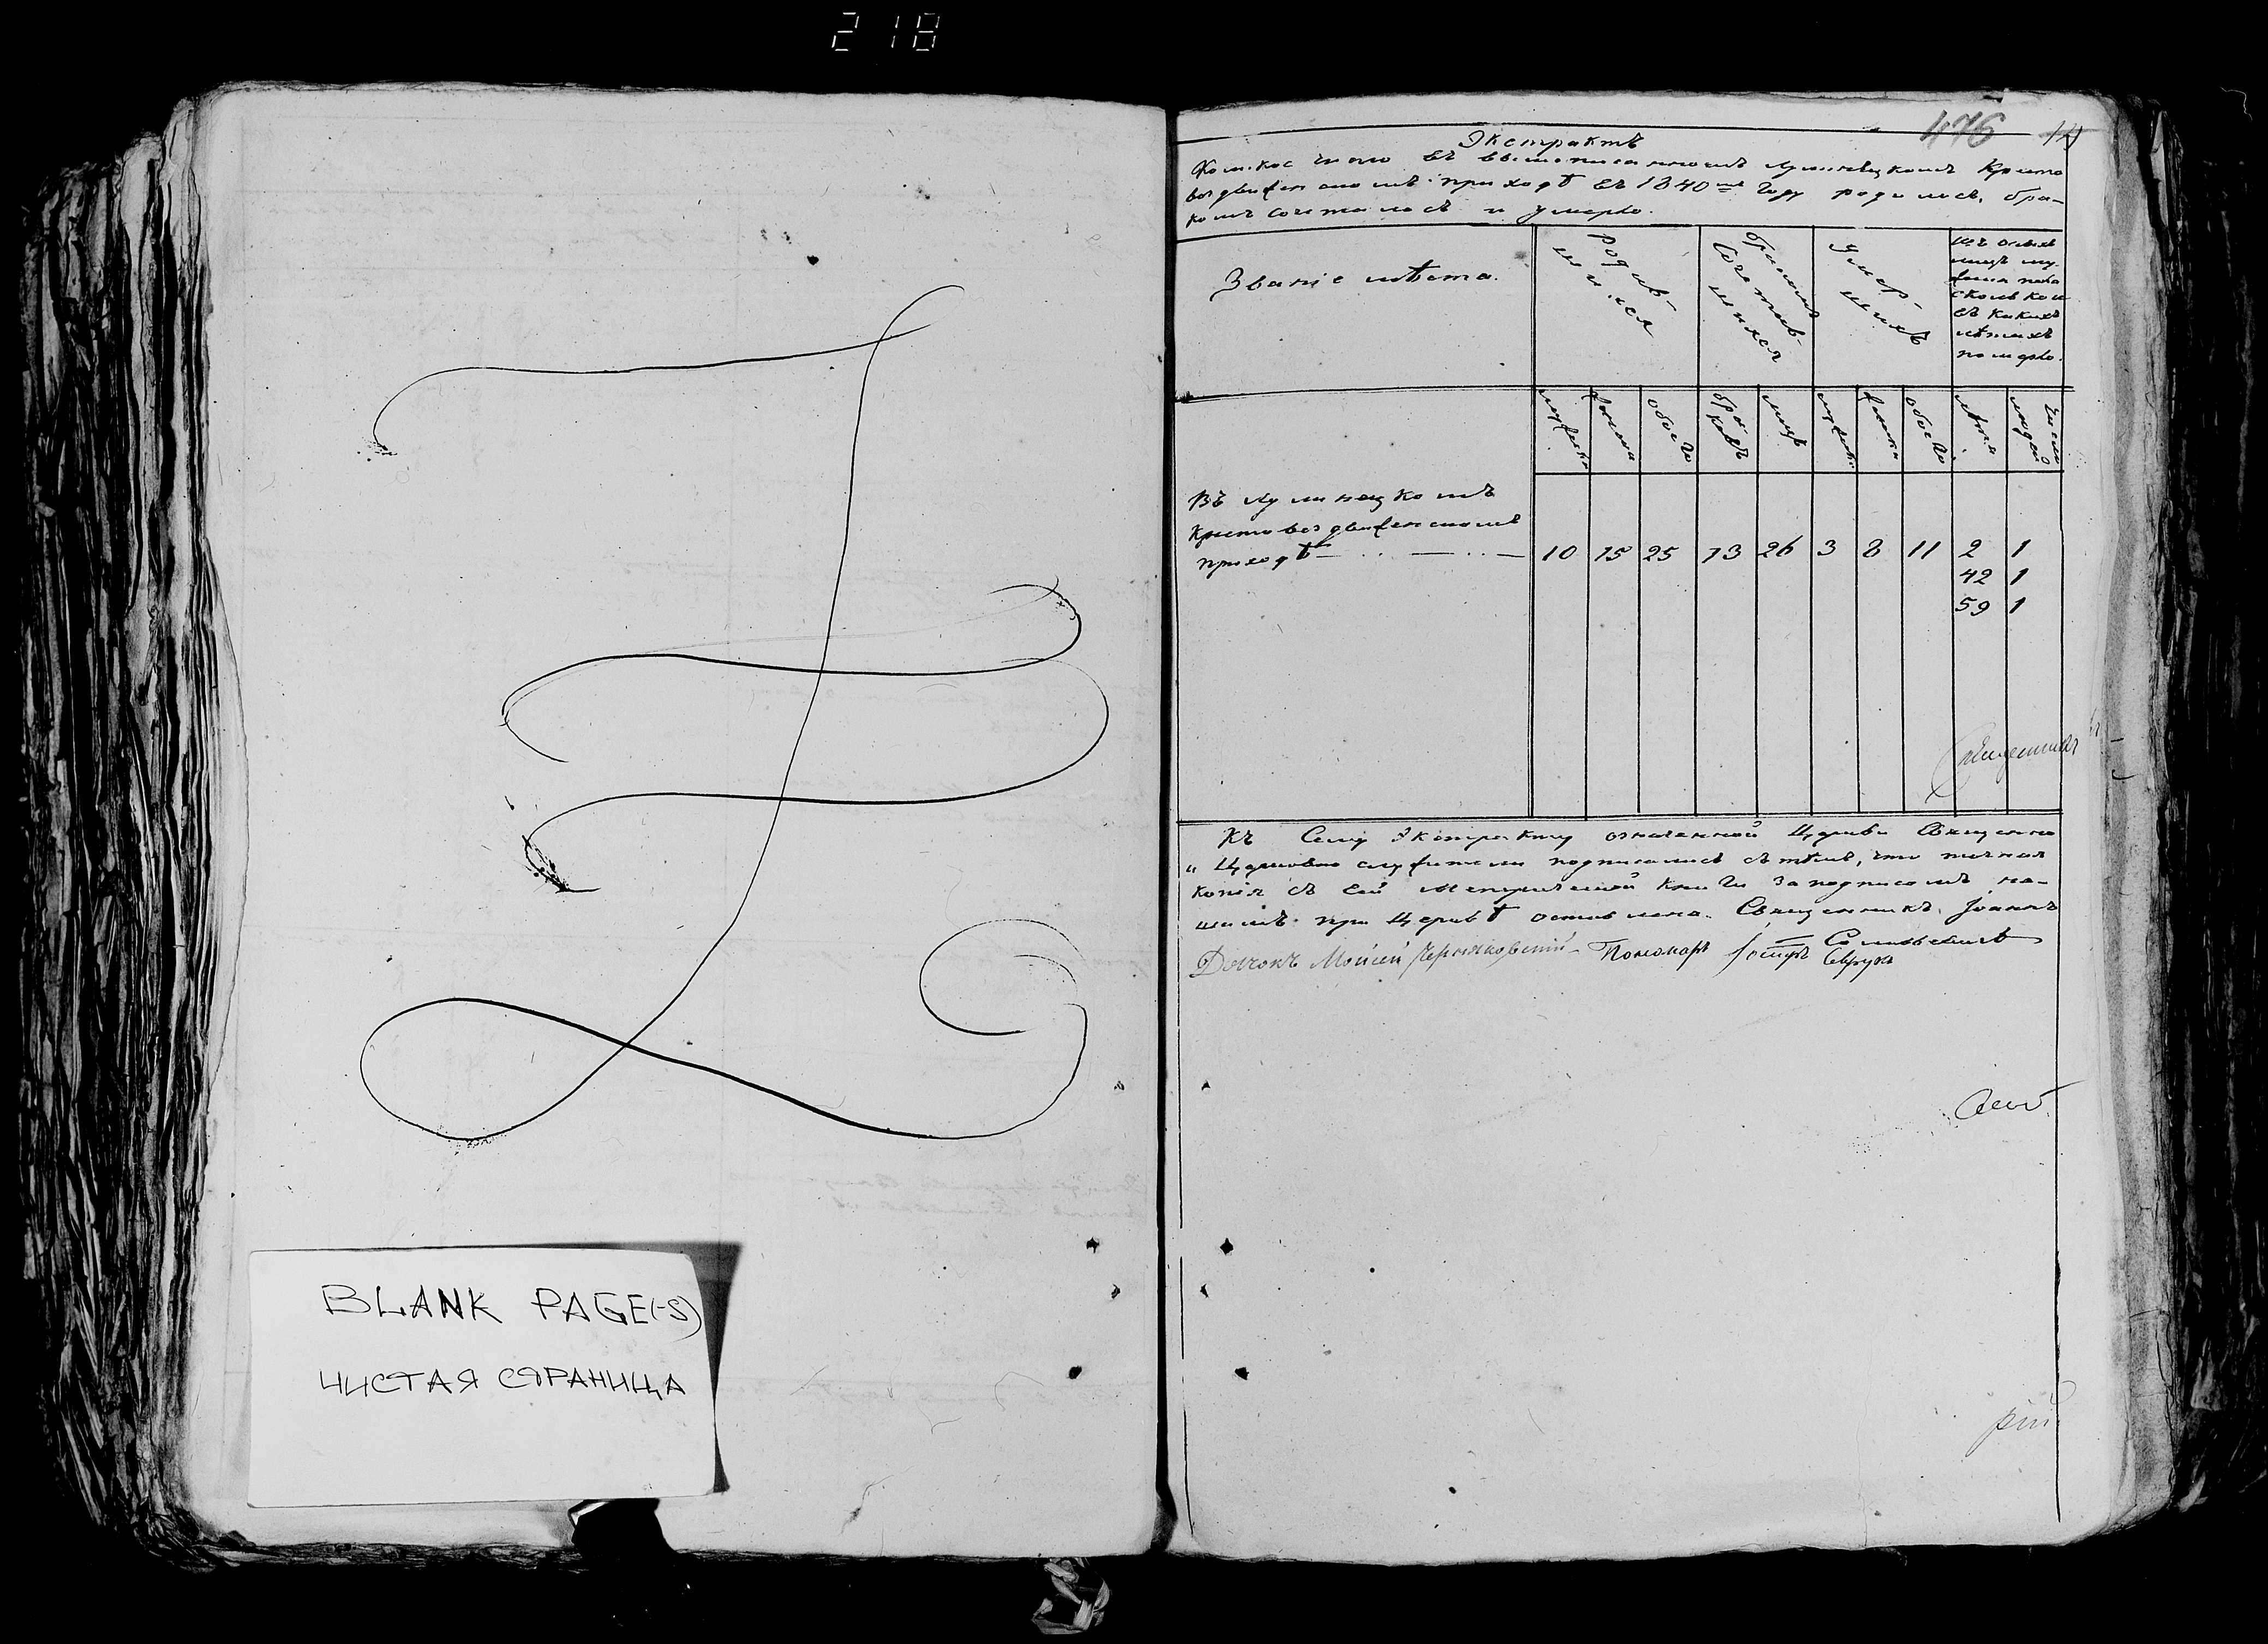 218
BLANK PAGE(-S)
ЧИСТАЯ СТРАНИЦА
476
Экстрактъ
Коликое число въ вышеписанномъ Лунинецкомъ Кресто
воздвиженскомъ приходѣ въ 1840мъ году родилось, бра-
комъ сочеталось и умерло.
Званіе мѣста.
Родив-
шихся
бракомъ
Сочетав-
шихся
Умер-
шихъ
изъ оныхъ
лицъ му-
жеска пола
сколько и
въ какихъ
лѣтахъ
померло.
мужеска
женска
обоего
бра-
ковъ
лицъ
мужеска
женска
обоего
лѣта
число
людей
Въ Лунинецкомъ
Крестовоздвиженскомъ
приходѣ 10 15 25 13 26 3 8 11 2 1
42 1
59 1
Священникъ
Къ Сему Экстракту означенной Церкви Священно
"Церковно служители подписались съ тѣмъ, что точная
копія съ сей Метрической книги за подписомъ на-
шимъ при Церквѣ оставлена. Священникъ Іоаннъ
Дьячокъ Мойсей Пономарь Іосифъ